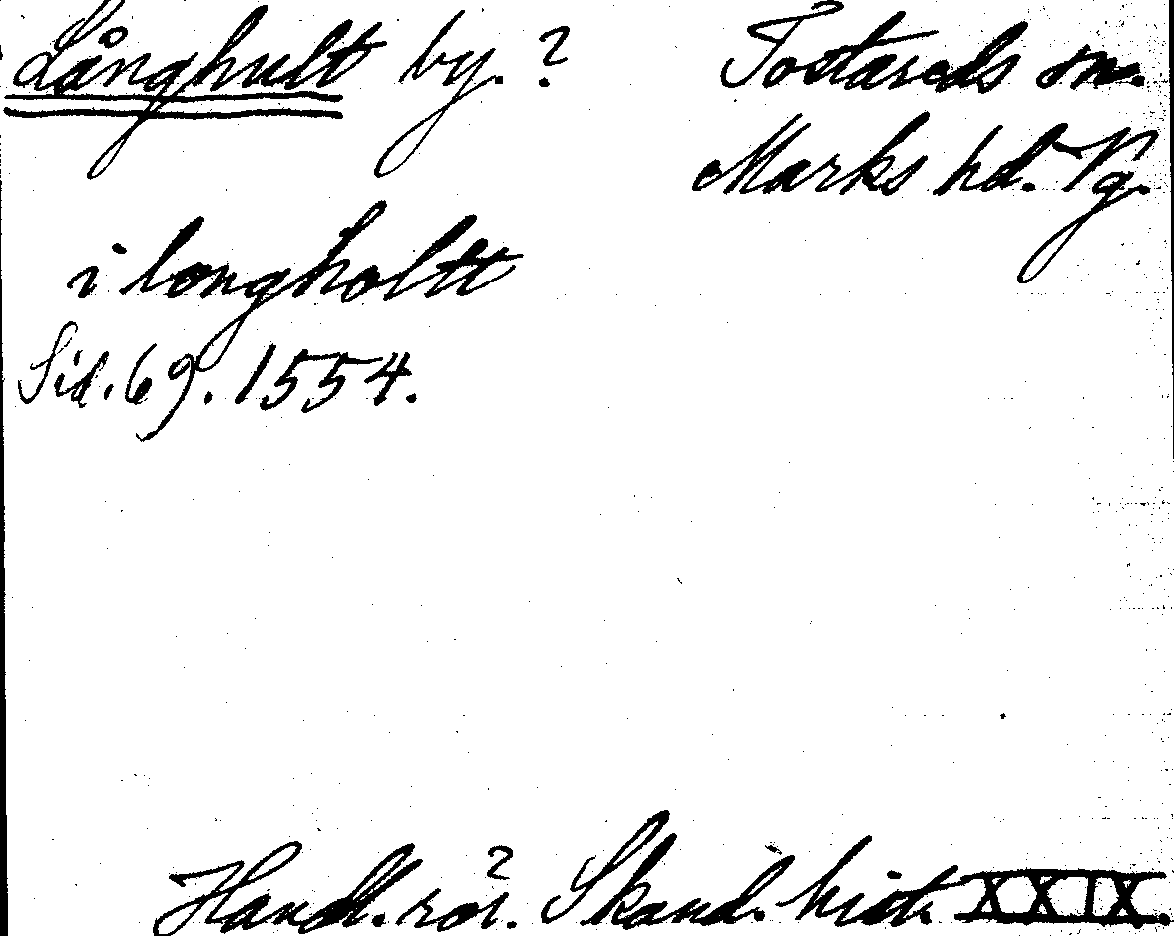 Långhult by. ? Tostareds sn.
Marks hd. Vg.
i longholtt
Sid. 69. 1554.
Handl. rör. Skand. hist. XXIX.